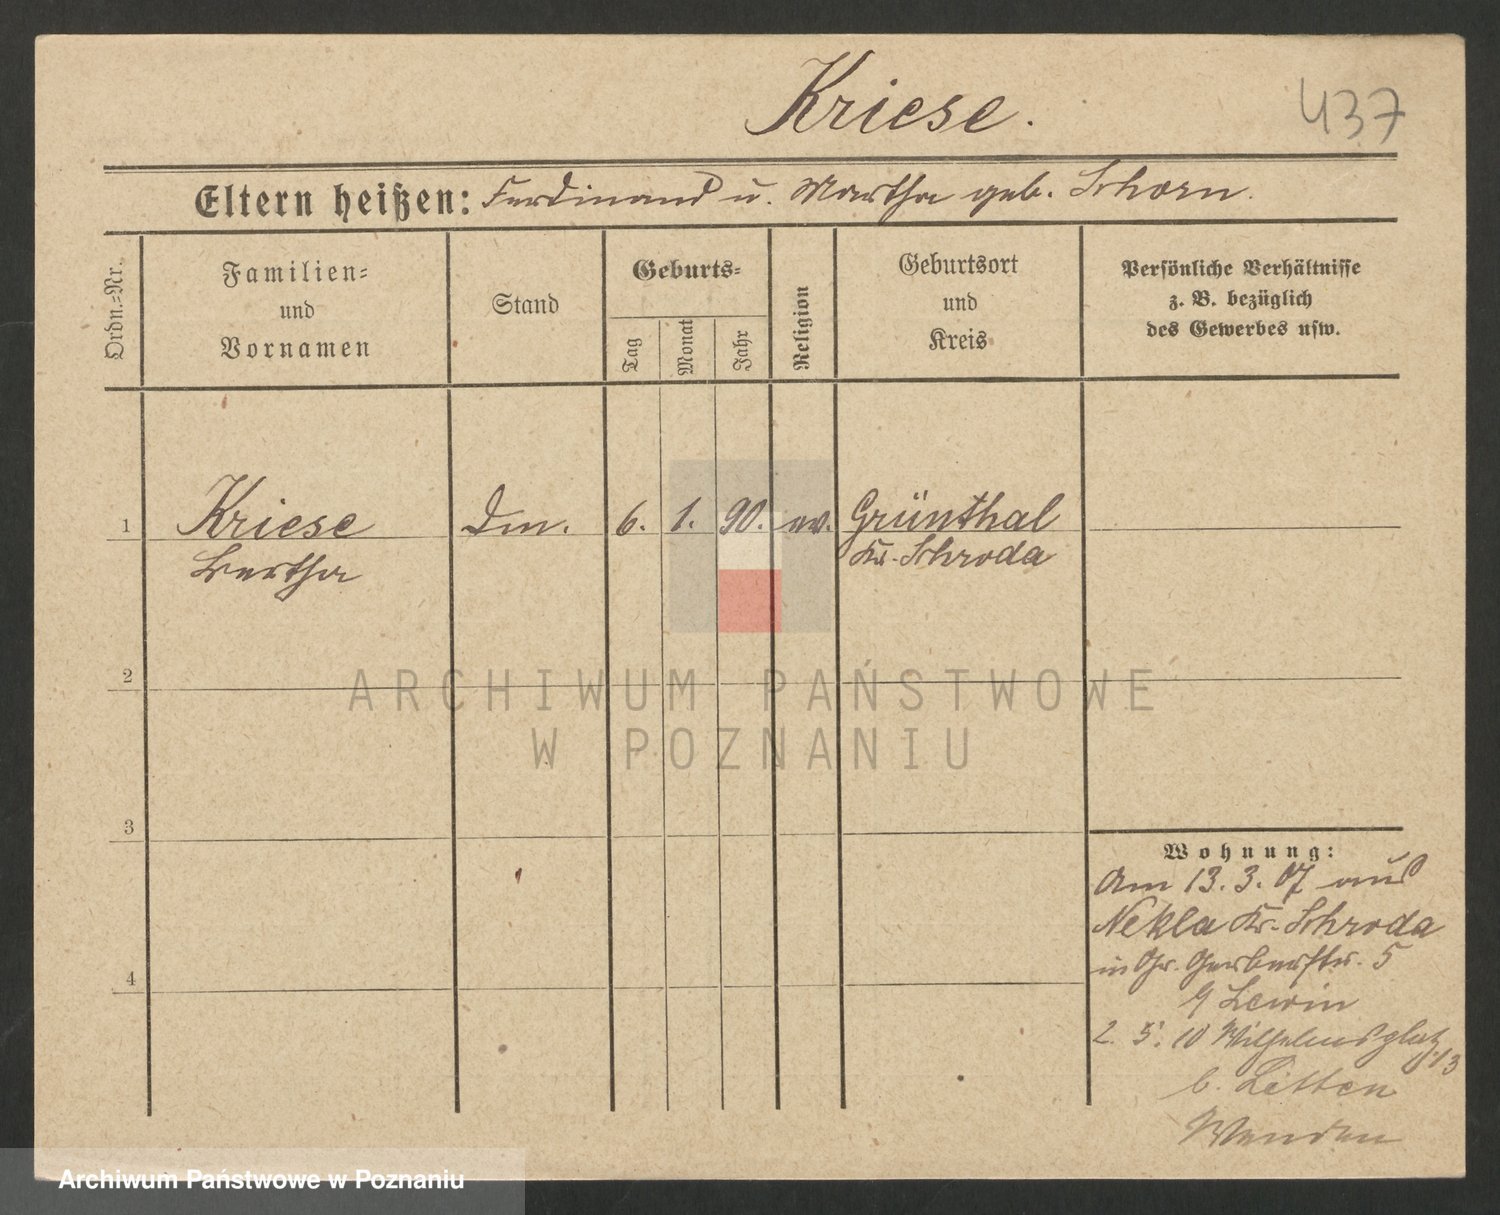 Kriese.
437
Eltern heißen: Ferdinand u. Martha geb. Schorn.
Ordn.-Nr.
Familien-
und
Vornamen
Stand
Geburts-
Tag
Monat
Jahr
Religion
Geburtsort
und
Kreis
Persönliche Verhältnisse
z. B. bezüglich
des Gewerbes usw.
1
Kriese
Bertha
Dm.
6.
1.
90.
ev.
Grünthal
Kr. Schroda
2
ARCHIWUM PAŃSTWOWE
W POZNANIU
3
4
Wohnung:
Am 13. 3. 07 aus
Nekla Kr. Schroda
in Gr. Gerberstr. 5
Lewin
2. 5. 10 Wilhelmsplatz 13
b. Litten
Archiwum Państwowe w Poznaniu